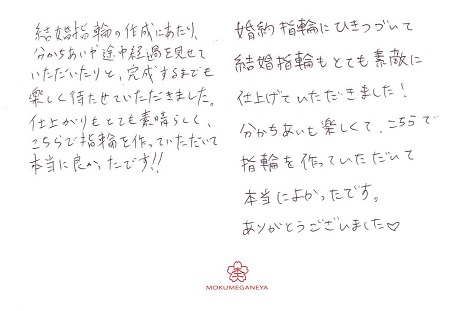 結婚指輪の作成にあたり、
分かちあいや途中経過を見せて
いただいたりと、完成するまでも
楽しく待たせていただきました。
仕上がりもとても素晴らしく、
こちらで指輪を作っていただいて
本当に良かったです!!
婚約指輪にひきつづいて
結婚指輪もとても素敵に
仕上げていただきました!
分かちあいも楽しくて、こちらで
指輪を作っていただいて
本当によかったです。
ありがとうございました♡
MOKUMEGANEYA